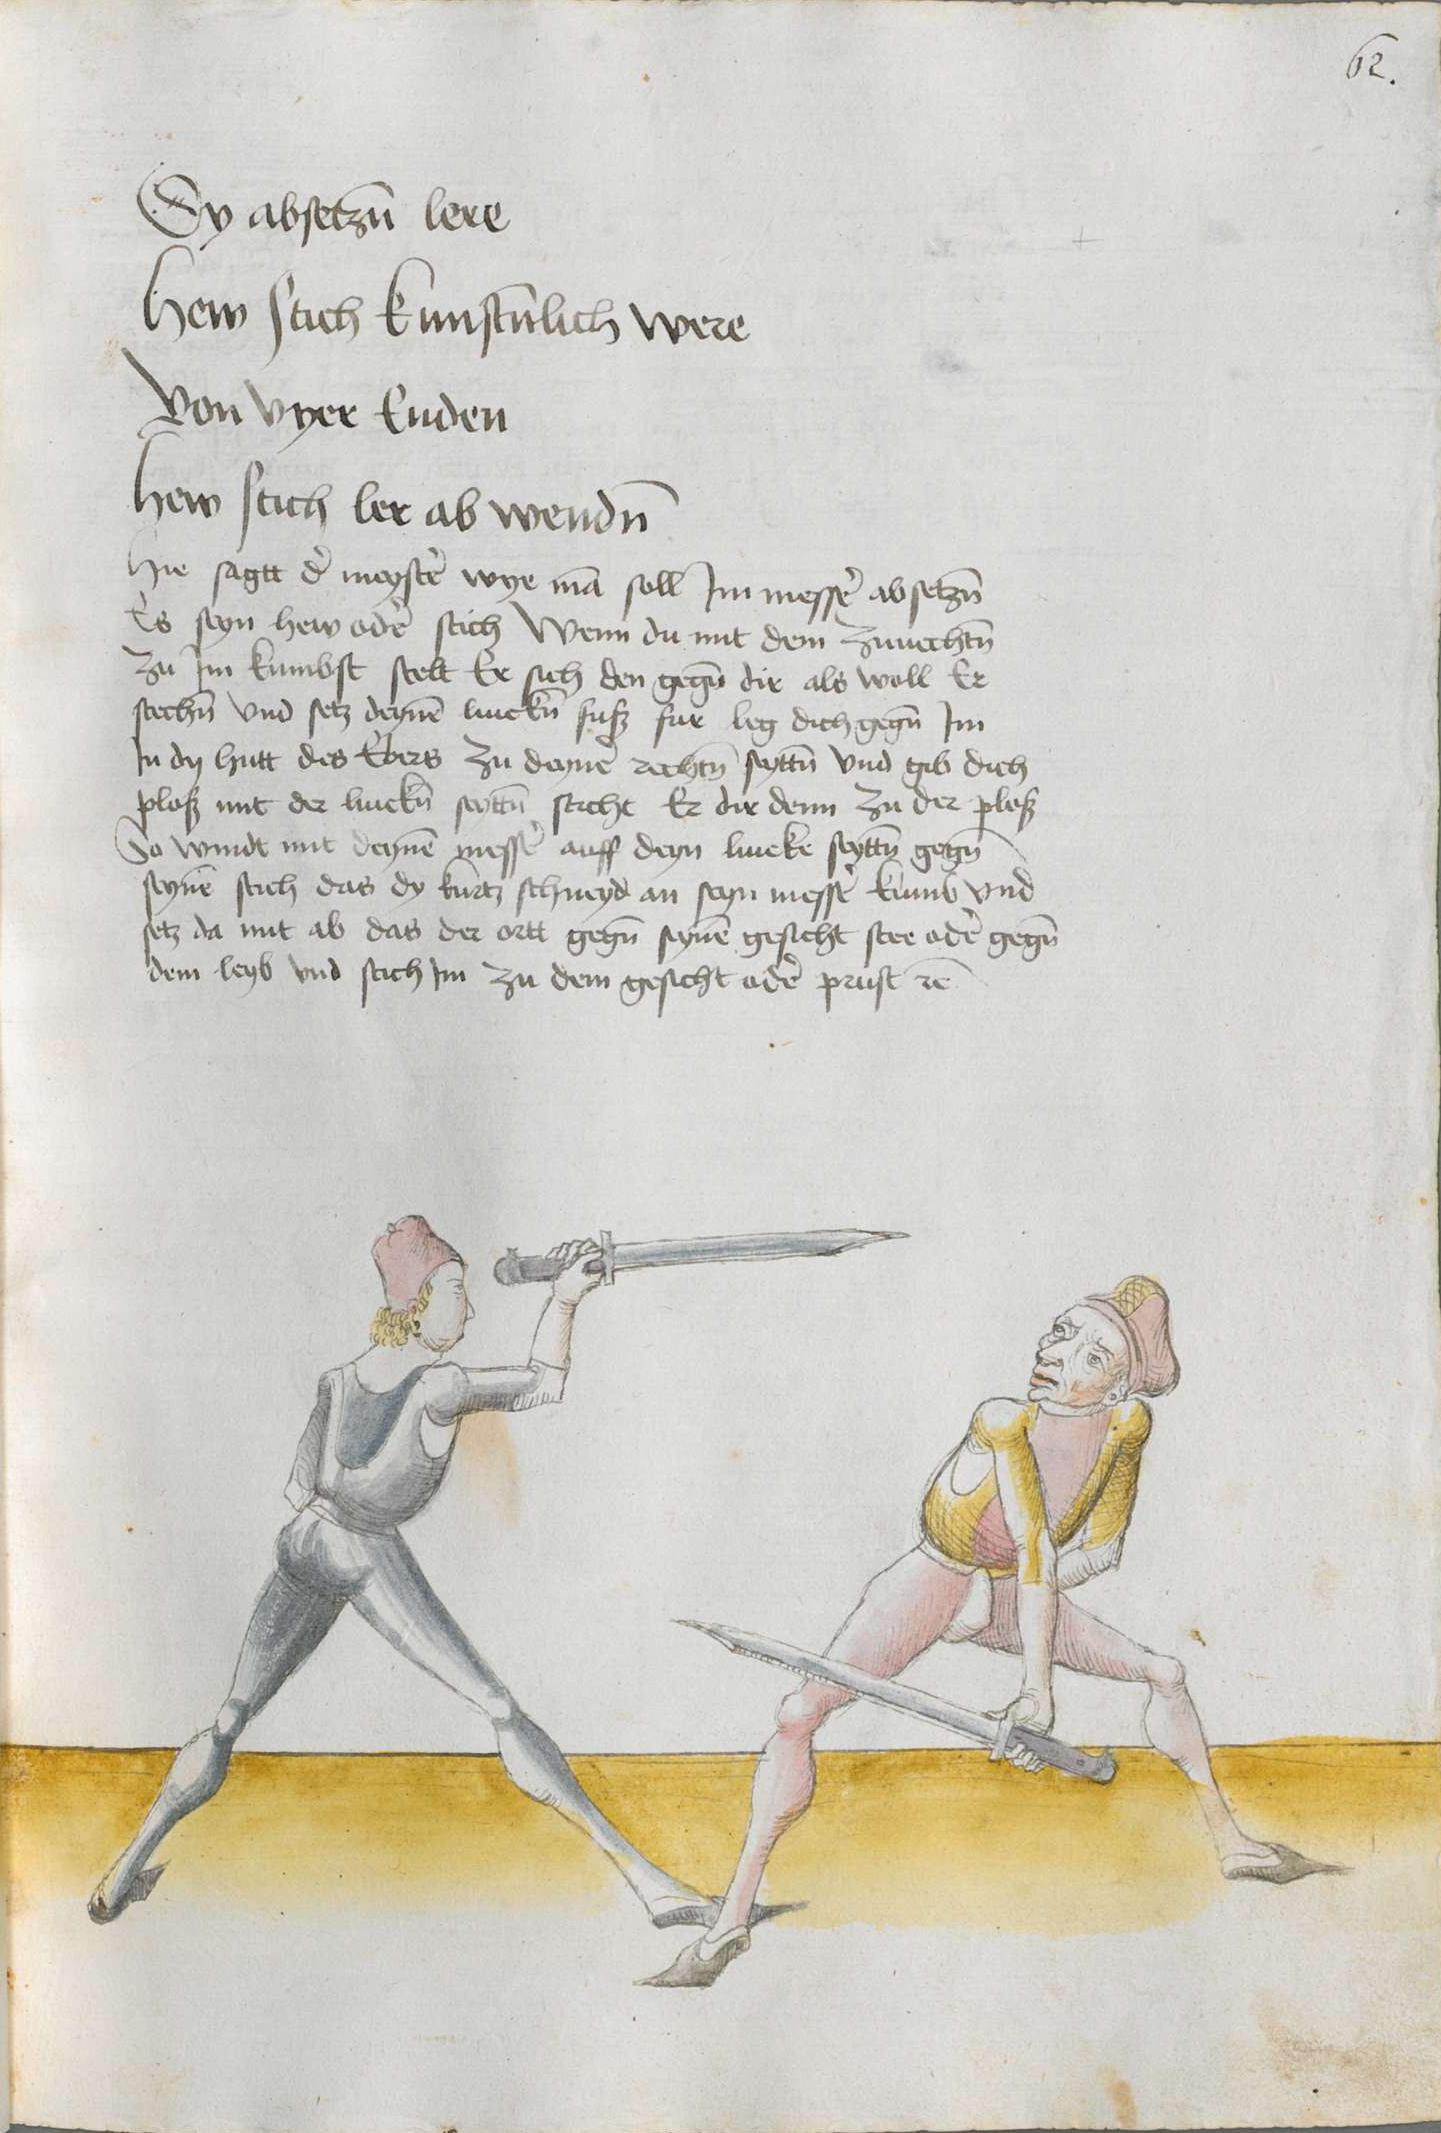 62.
Dy absetzn̄ lere
Hew stich kunstn̄lich were
Von vyer Enden
Hew stich ler ab wendn̄
Hie sagtt d' meyst' wye mā soll Im mess' ab setzn̄
Es seyn hew od' stich Wenn du mit dem zuuechtn̄
zu Im kumbst stelt Er sich den gegn̄ dir als woll Er
stechn̄ vnd setz deynē linckn̄ fusz fur leg dich gegn̄ Im
In dy hutt des Ebers zu deyner rechtn̄ seyttn̄ vnd gib dich
plosz mit der linckn̄ seyttn̄ sticht Er dir denn zu der plosz
So windt mit deynē mess' auff deyn lincke seyttn̄ gegn̄
seynē stich das dy kurtz schneyd an seyn mess' kumb vnd
setz da mit ab das der ortt gegn̄ synē gesicht stee od' gegn̄
dem leyb vnd stich Im zu dem gesicht od' prust rē